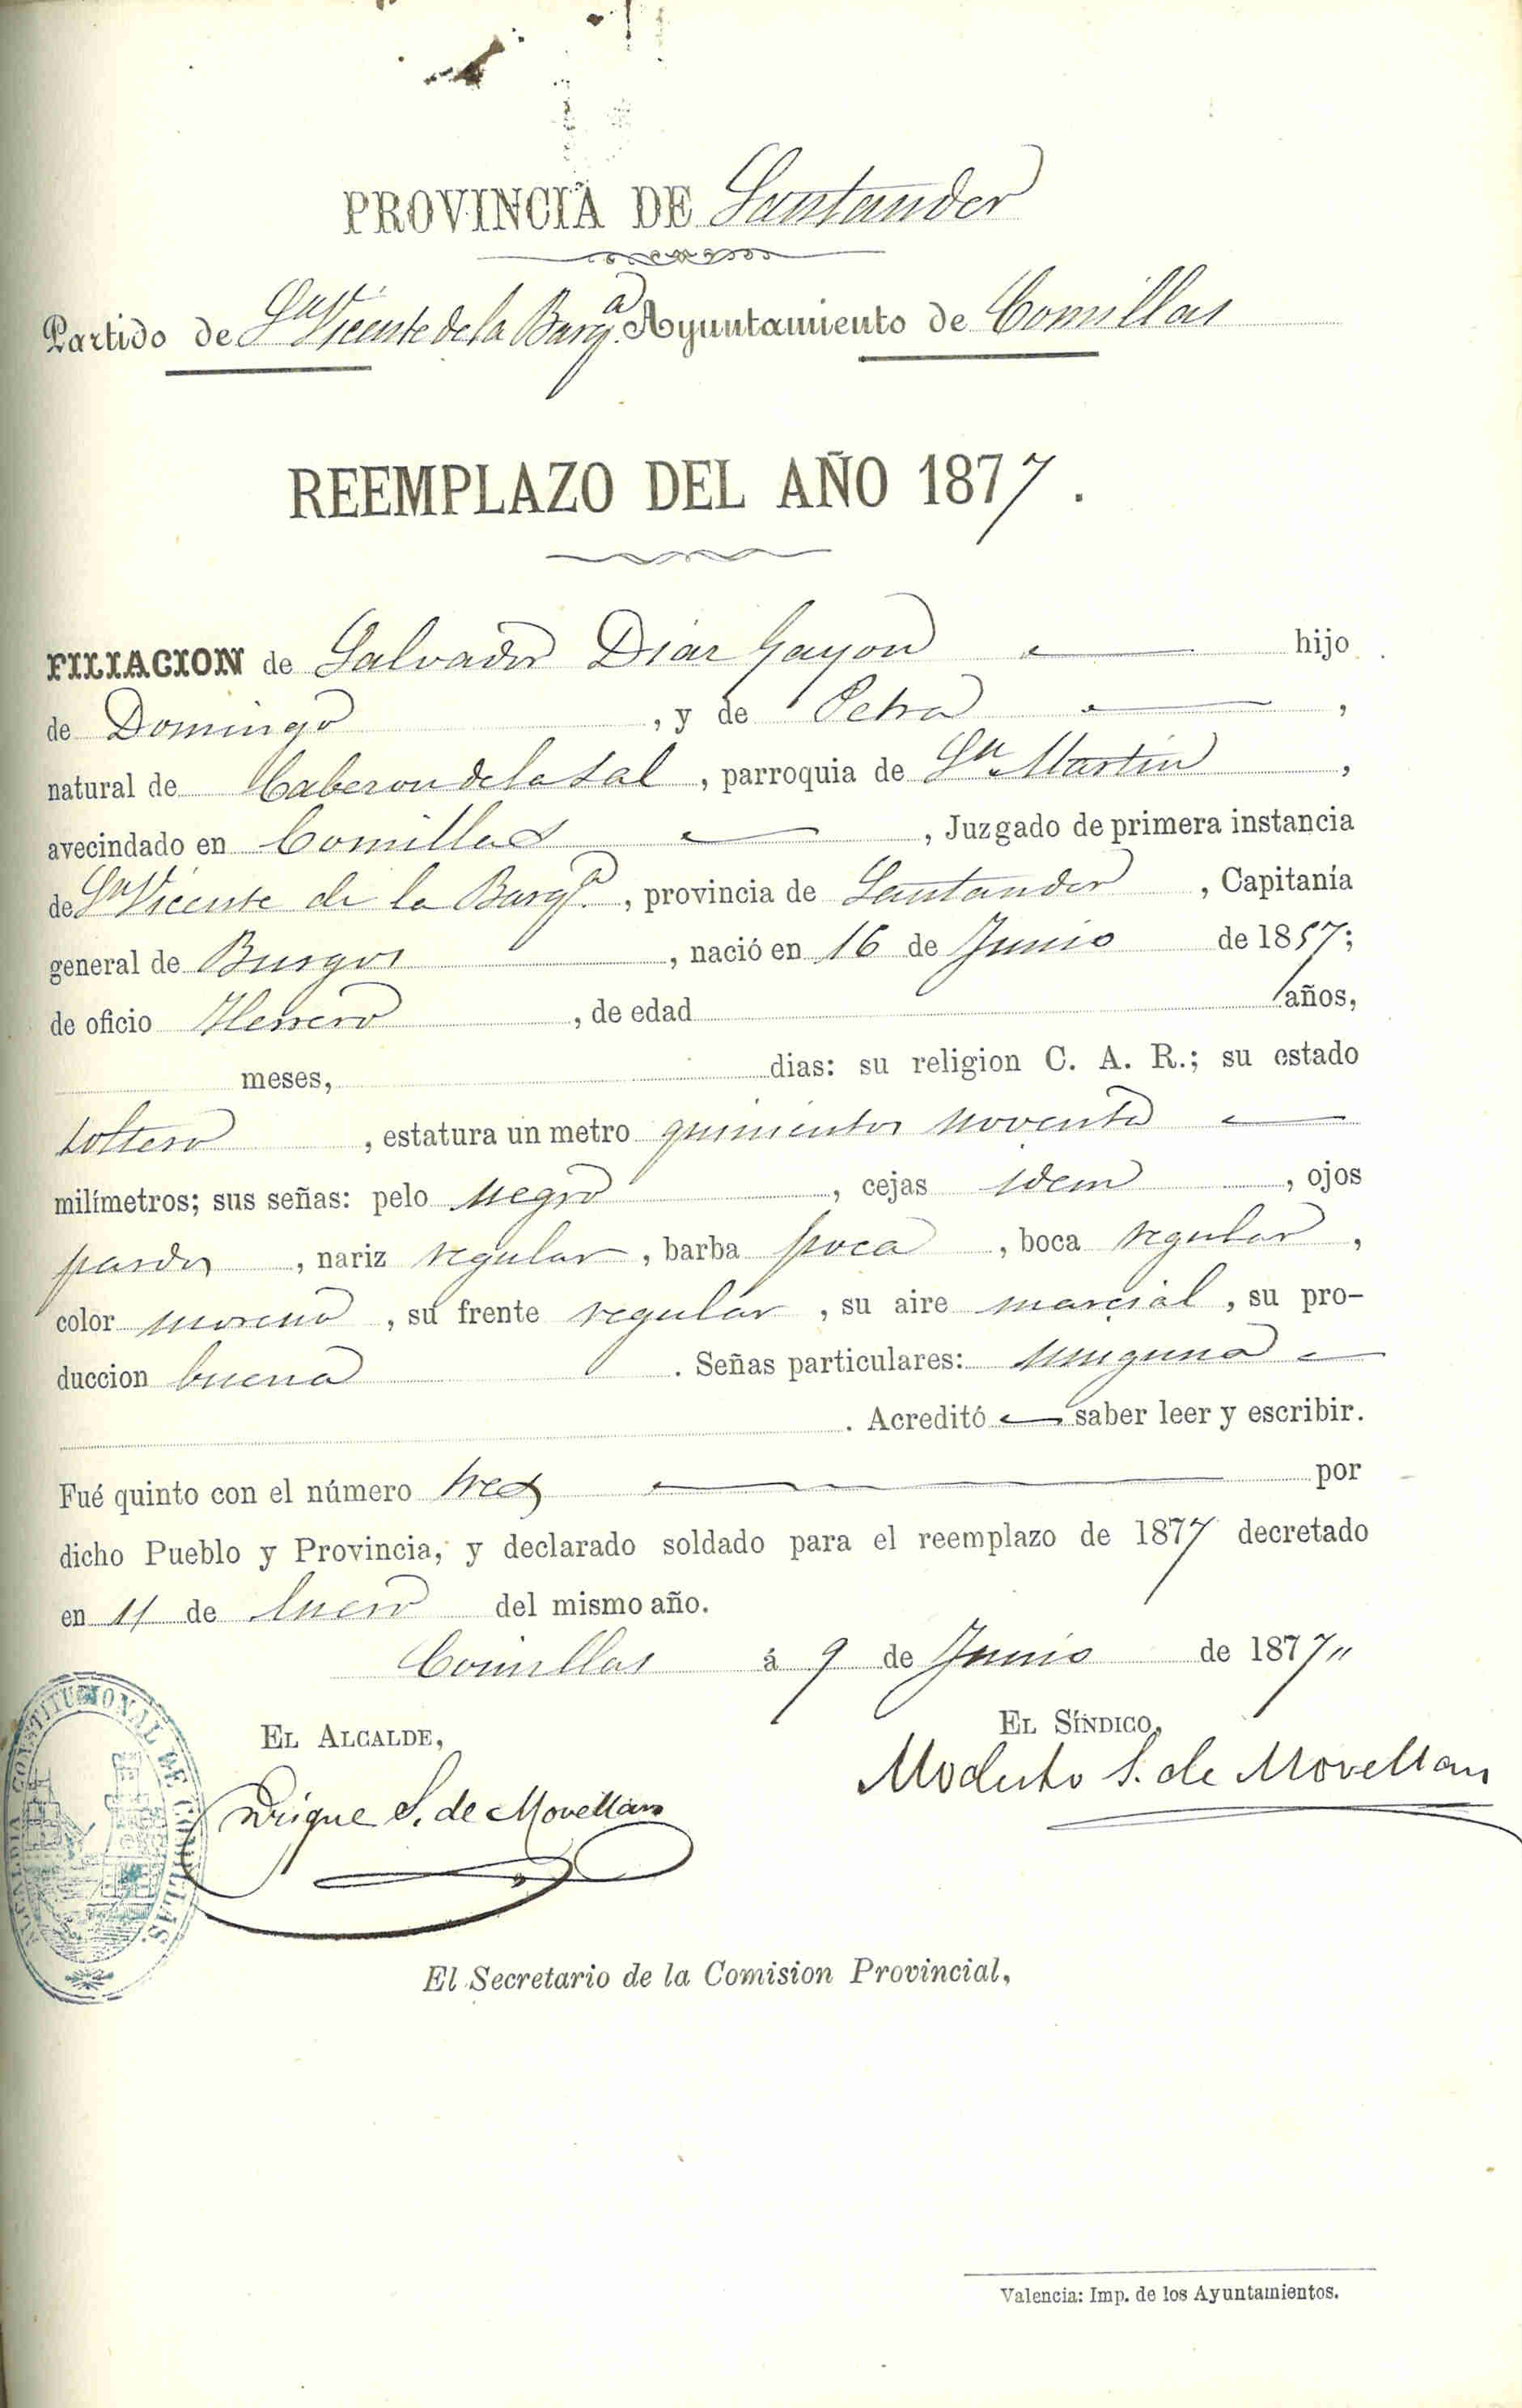 PROVINCIA DE Santander
Partido de Sn Vicente de la Barqa. Ayuntamiento de Comillas
REEMPLAZO DEL AÑO 1877.
FILIACION de Salvador Diaz Gayon hijo
de Domingo, y de Petra,
natural de Cabezon de la Sal, parroquia de Sn Martin,
avecindado en Comillas, Juzgado de primera instancia
de Sn Vicente de la Barqa., provincia de Santander, Capitanía
general de Burgos, nació en 16 de Junio de 1857;
de oficio Herrero, de edad años,
meses, dias: su religion C. A. R.; su estado
soltero, estatura un metro quinientos noventa
milímetros; sus señas: pelo negro, cejas idem, ojos
pardos, nariz regular, barba poca, boca regular,
color moreno, su frente regular, su aire marcial, su pro-
duccion buena. Señas particulares: ninguna
. Acreditó saber leer y escribir.
Fué quinto con el número tres por
dicho Pueblo y Provincia, y declarado soldado para el reemplazo de 1877 decretado
en 11 de Enero del mismo año.
Comillas á 9 de Junio de 1877"
EL ALCALDE,
EL SÍNDICO,
Enrique S. de Movellan
Modesto S. de Movellan
ALCALDIA CONSTITUCIONAL DE COMILLAS.
El Secretario de la Comision Provincial,
Valencia: Imp. de los Ayuntamientos.